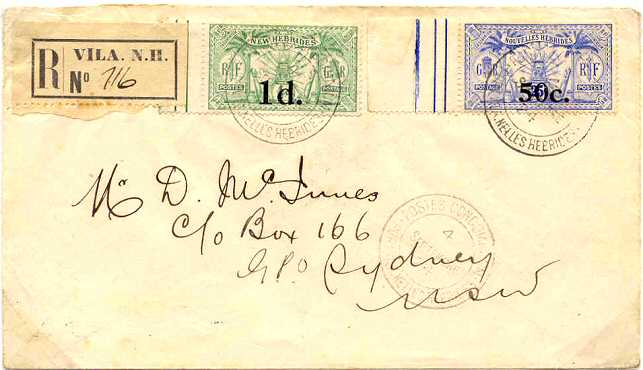 R VILA. N.H.
No 716
NEW HEBRIDES
R F G R
1d.
POSTAGE POSTES
NOUVELLES HEBRIDES
G R R F
50c.
POSTAGE POSTES
N.ELLES HEBRIDES
N.ELLES HEBRIDES
Mr D. McInnes
c/o Box 166
GPO Sydney
NSW
POSTES
4